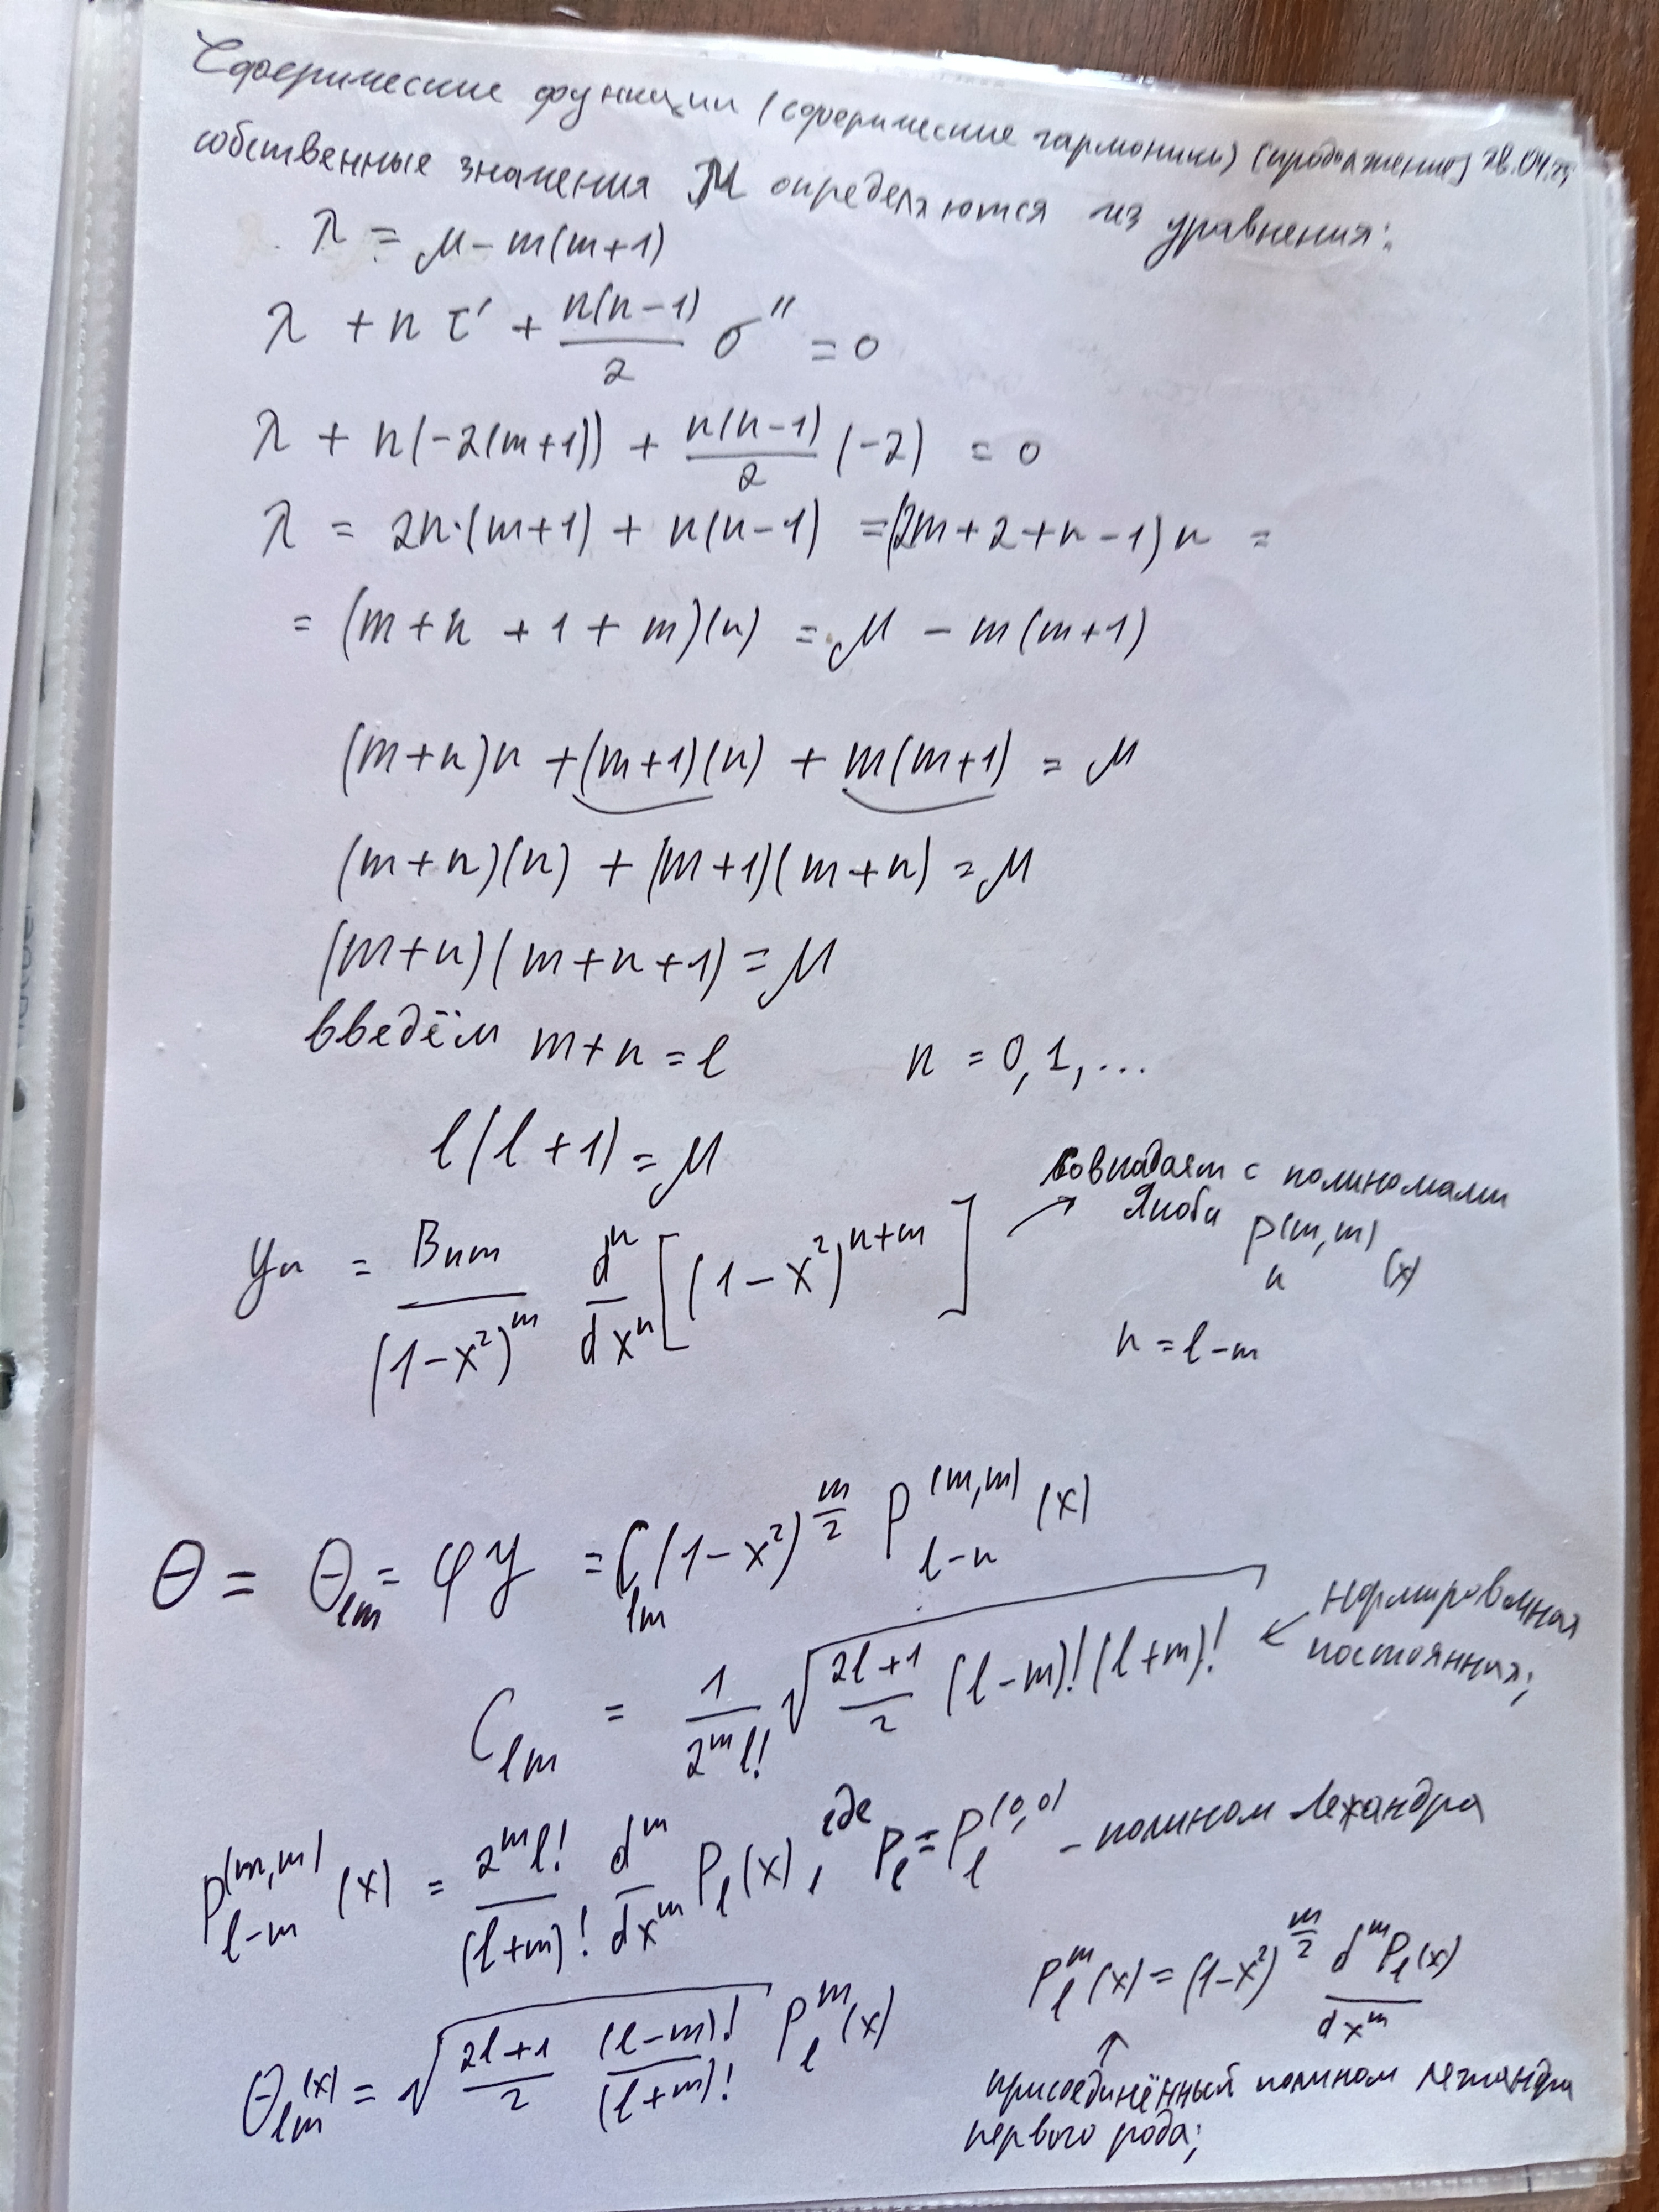 Сферические функции (сферические гармоники) (продолжение) 28.04.25
собственные значения μ определяются из уравнения:
λ = μ - m(m+1)
λ + n τ' + n(n-1)/2 σ'' = 0
λ + n(-2(m+1)) + n(n-1)/2 (-2) = 0
λ = 2n·(m+1) + n(n-1) = (2m+2+n-1)n =
= (m+n+1+m)(n) = μ - m(m+1)
(m+n)n + (m+1)(n) + m(m+1) = μ
(m+n)(n) + (m+1)(m+n) = μ
(m+n)(m+n+1) = μ
введём m+n = l n = 0, 1, ...
l(l+1) = μ
y_n = B_nm/(1-x²)^m d^n/dx^n [(1-x²)^(n+m)] → совпадают с полиномами
Якоби P_n^(m,m) (x)
n = l-m
Θ = Θ_lm = φy = C_lm (1-x²)^(m/2) P_(l-n)^(m,m) (x)
C_lm = 1/(2^m l!) √((2l+1)/2 (l-m)!(l+m)!) ← нормировочная
постоянная;
P_(l-m)^(m,m) (x) = 2^m l!/(l+m)! d^m/dx^m P_l(x), где P_l = P_l^(0,0) - полином Лежандра
P_l^m(x) = (1-x²)^(m/2) d^m P_l(x)/dx^m
Θ_lm(x) = √((2l+1)/2 (l-m)!/(l+m)!) P_l^m(x)
↑
присоединённый полином лежандра
первого рода;